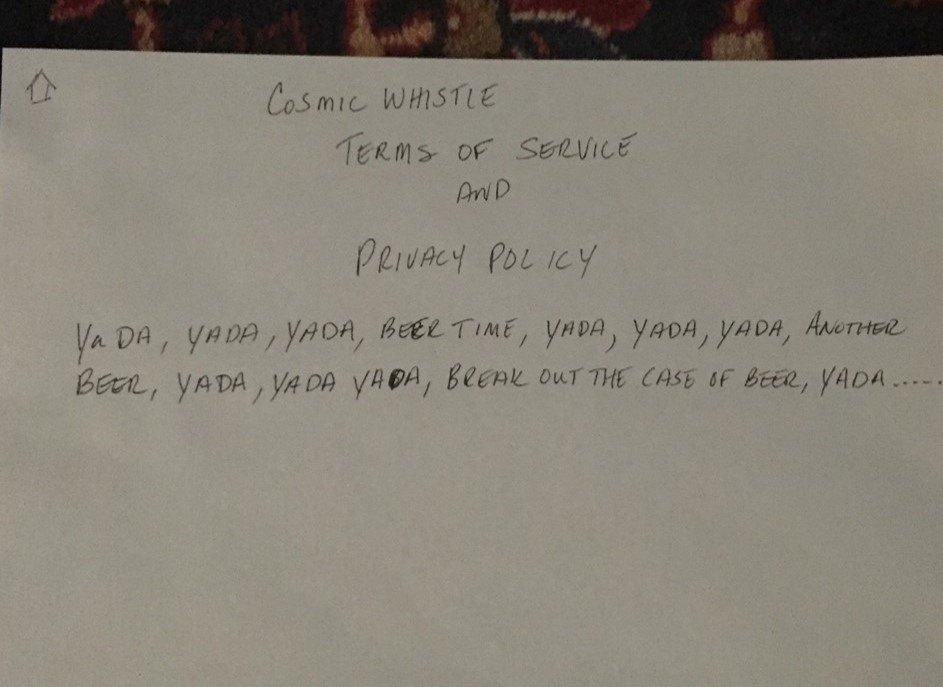 COSMIC WHISTLE
TERMS OF SERVICE
AND
PRIVACY POLICY
YaDA, YADA, YADA, BEER TIME, YADA, YADA, YADA, ANOTHER
BEER, YADA, YADA YADA, BREAK OUT THE CASE OF BEER, YADA......